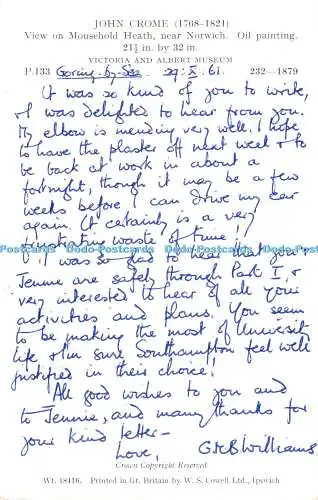 JOHN CROME (1768–1821)
View on Mousehold Heath, near Norwich. Oil painting.
21½ in. by 32 in.
VICTORIA AND ALBERT MUSEUM
P.133 Goring-by-Sea 29:X.61. 232—1879
It was so kind of you to write,
& I was delighted to hear from you.
My elbow is mending very well. I hope
to have the plaster off next week & to
be back at work in about a
fortnight, though it may be a few
weeks before I can drive my car
again. It certainly is a very
frustrating waste of time!
I was so glad to hear that you &
Jennie are safely through Part I, &
very interested to hear of all your
activities and plans. You seem
to be making the most of University
life & I'm sure Southampton feel well
justified in their choice!
All good wishes to you and
to Jennie, and many thanks for
your kind letter—
Love, Williams
Crown Copyright Reserved
Wt. 18416. Printed in Gt. Britain by W. S. Cowell Ltd., Ipswich